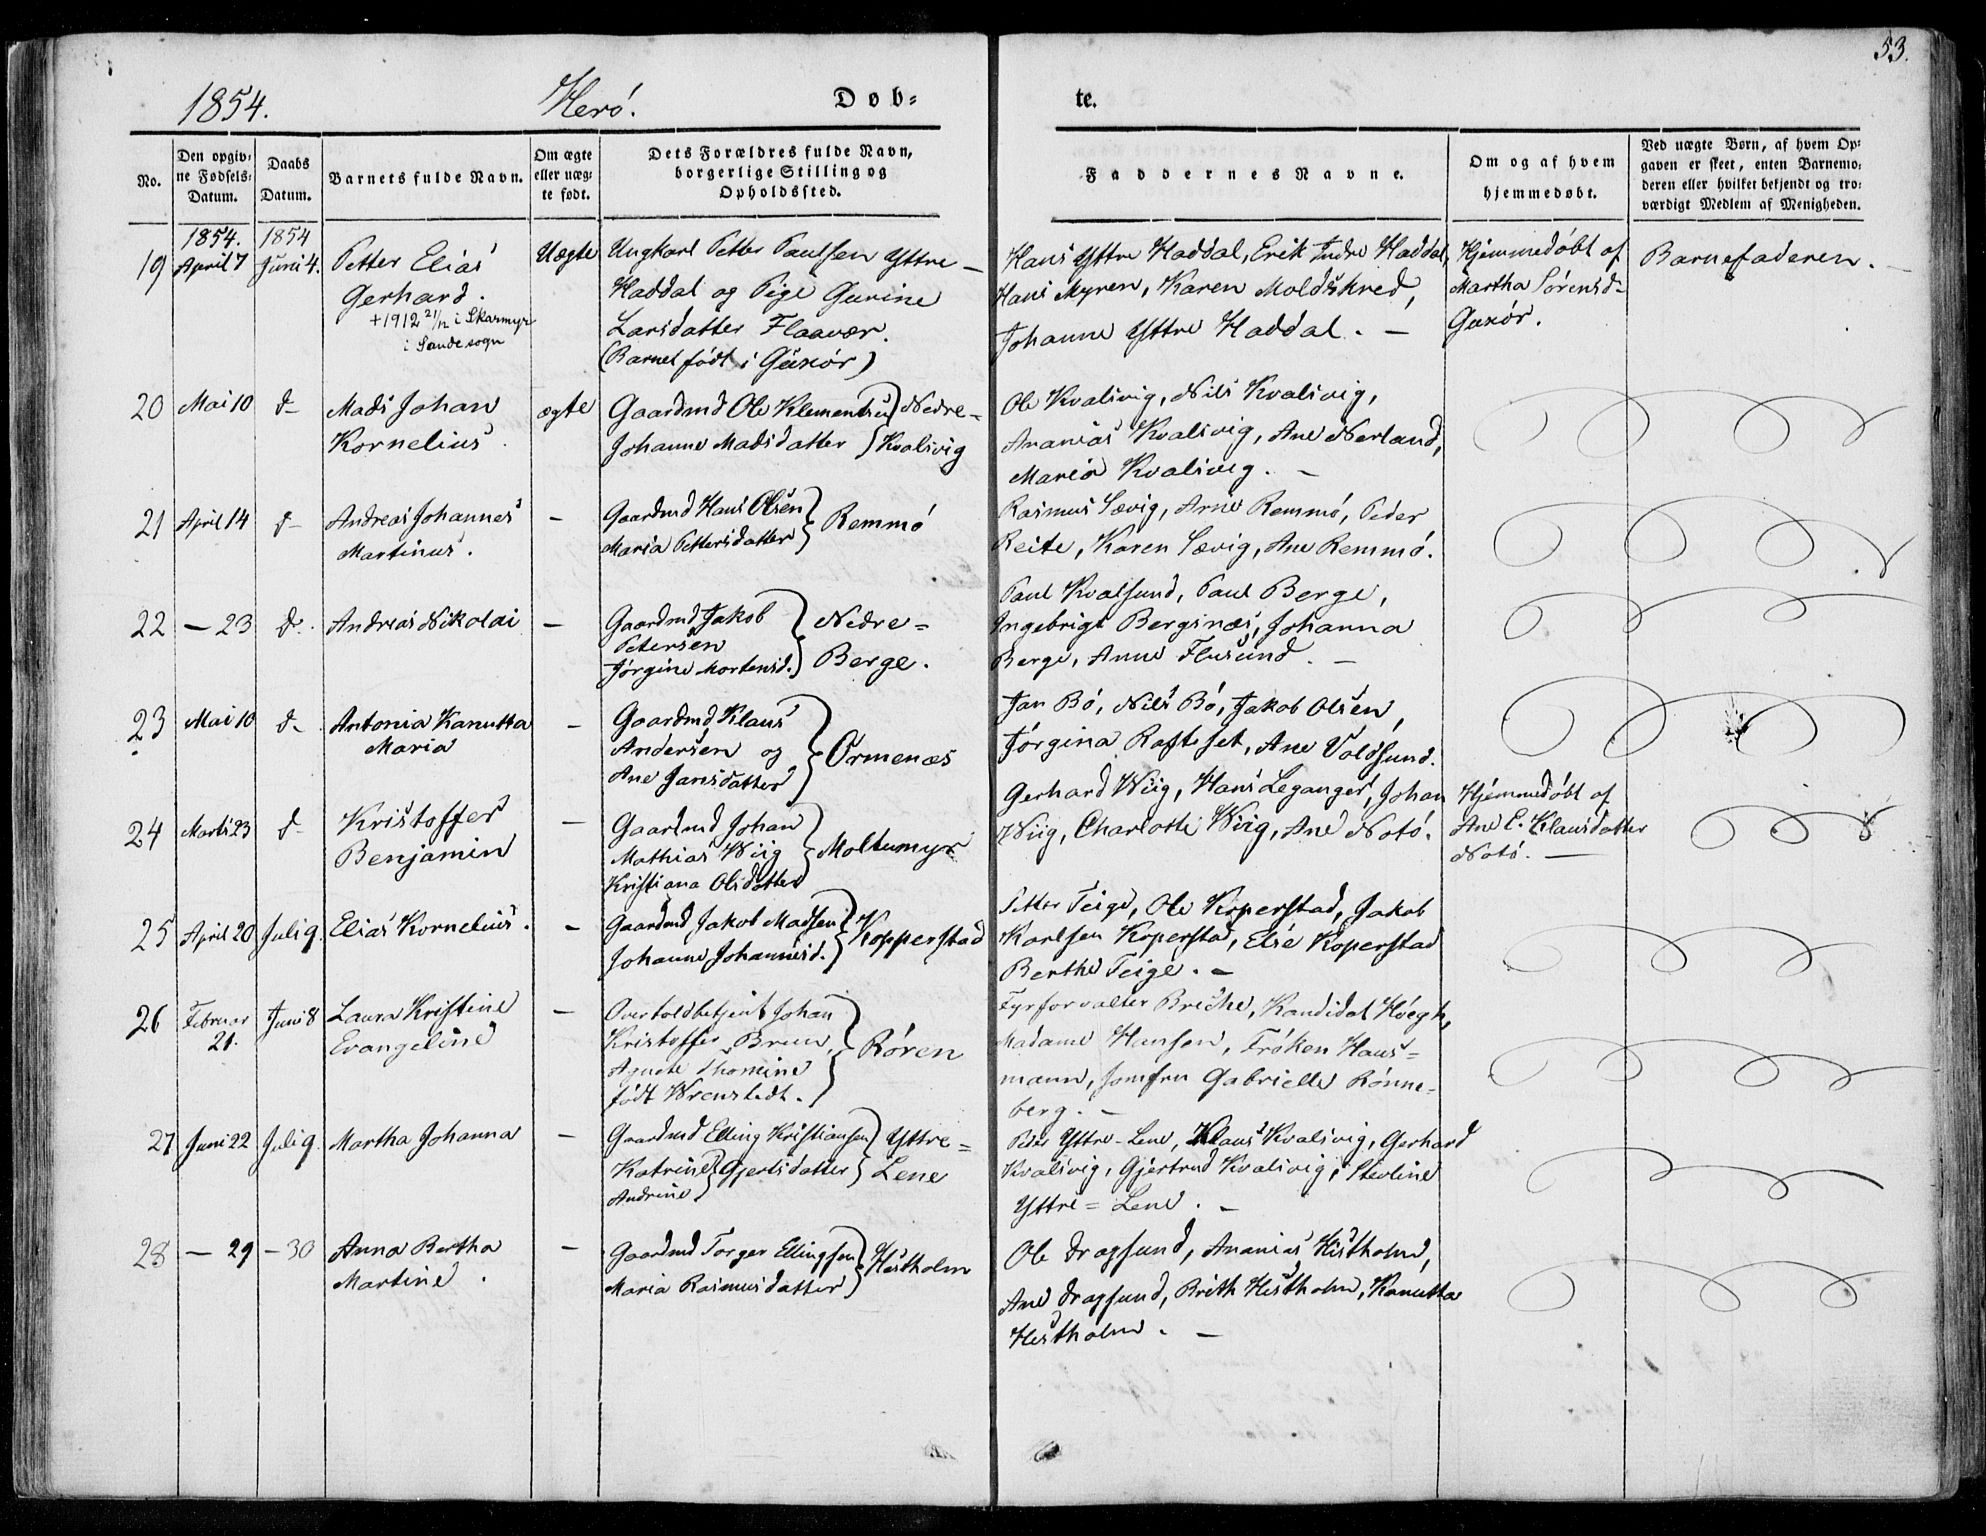 53.
1854.
Herø.
Døb-
te.
No.
Den opgiv-
ne Fødsels-
Datum.
Daabs
Datum.
Barnets fulde Navn.
Om ægte
eller uæg-
te født.
Dets Forældres fulde Navn,
borgerlige Stilling og
Opholdssted.
Faddernes Navne.
Om og af hvem
hjemmedøbt.
Ved uægte Børn, af hvem Op-
gaven er skeet, enten Barnemo-
deren eller hvilket bekjendt og tro-
værdigt Medlem af Menigheden.
19
1854.
April 7
1854
Juni 4.
Petter Elias
Gerhard.
+1912 21/12 i Skarmyr
i Sande sogn
Uægte
Ungkarl Petter Paulsen Yttre-
Haddal og Pige Gurine
Larsdatter Flaavær.
(Barnet født i Guxør)
Hans Yttre Haddal, Erik Indre Haddal,
Hans Myren, Karen Moldskred,
Johanne Yttre Haddal. -
Hjemmedøbt af
Martha Sørensd-
Guxør.
Barnefaderen. -
20
Mai 10
d-
Mads Johan
Kornelius.
ægte
Gaardmd Ole Klementsen } Nedre-
Johanne Madsdatter } Kvalsvig
Ole Kvalsvig, Nils Kvalsvig,
Ananias Kvalsvig, Ane Nerland,
Maria Kvalsvig. -
21
April 14
d-
Andreas Johannes
Martinus.
-
Gaardmd Hans Olsen
Maria Pettersdatter } Remmø
Rasmus Sævig, Arne Remmø, Peder
Reite, Karen Sævig, Ane Remmø.
22
- 23
d-
Andreas Nikolai
-
Gaardmd Jakob
Petersen
Jørgine Mortensd. } Nedre-
Berge.
Paul Kvalsund, Paul Berge,
Ingebrigt Berginæs, Johanna
Berge, Anne Flusund. -
23
Mai 10
d-
Antonia Kanutta
Maria
-
Gaardmd Klaus
Andersen og
Ane Jansdatter } Ormenæs
Jan Bø, Nils Bø, Jakob Olsen,
Jørgina Rafteset, Ane Voldsund.
24
Marts 23
d-
Kristoffer
Benjamin
-
Gaardmd Johan
Mathias Wiig
Kristiana Olsdatter } Moltumyr
Gerhard Wiig, Hans Leganger, Johan
Wiig, Charlotte Wiig, Ane Notø.
Hjemmedøbt af
Ane E. Klausdatter
Notø. -
25
April 20
Juli 9.
Elias Kornelius.
-
Gaardmd Jakob Madsen
Johanne Johannesd. } Kopperstad
Petter Teige, Ole Koperstad, Jakob
Karlsen Koperstad, Else Koperstad
Berthe Teige. -
26
Februar
21.
Juni 8
Laura Kristine
Evangeline
-
Overtoldbetjent Johan
Kristoffer Brun,
Agnete Thomine
født Wrenstedt. } Røren
Fyrforvalter Breche, Kandidat Høegh,
Madame Hansen, Frøken Haus-
mann, Jomfru Gabrielle Rønne-
berg. -
27
Juni 22
Juli 9.
Martha Johanna
-
Gaardmd Elling Kristiansen } Yttre-
Katrine } Gjertsdatter } Lene
Andrine
Peder Yttre-Lene, Klaus Kvalsvig, Gerhard
Kvalsvig, Gjertrud Kvalsvig, Stevline
Yttre-Lene. -
28
- 29
- 30
Anna Bertha
Martine.
-
Gaardmd Torger Ellingsen
Maria Rasmusdatter } Hestholm
Ole Dragsund, Ananias Hestholm,
Ane Dragsund, Brith Hestholm, Kanutta
Hestholm. -